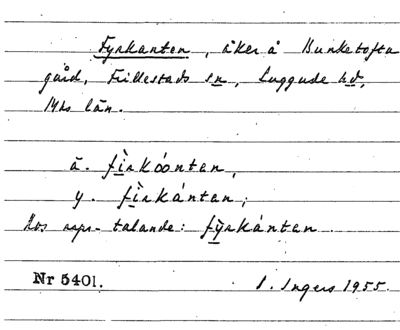 Fyrkanten, åker å Bunketofta
gård, Frillestads sn, Luggude hd,
Mhs län.
ä. fìrkóontan,
y. fìrkántan;
Hos rspr-talande: fy̆rkántan
Nr 5401.
I. Ingers 1955.